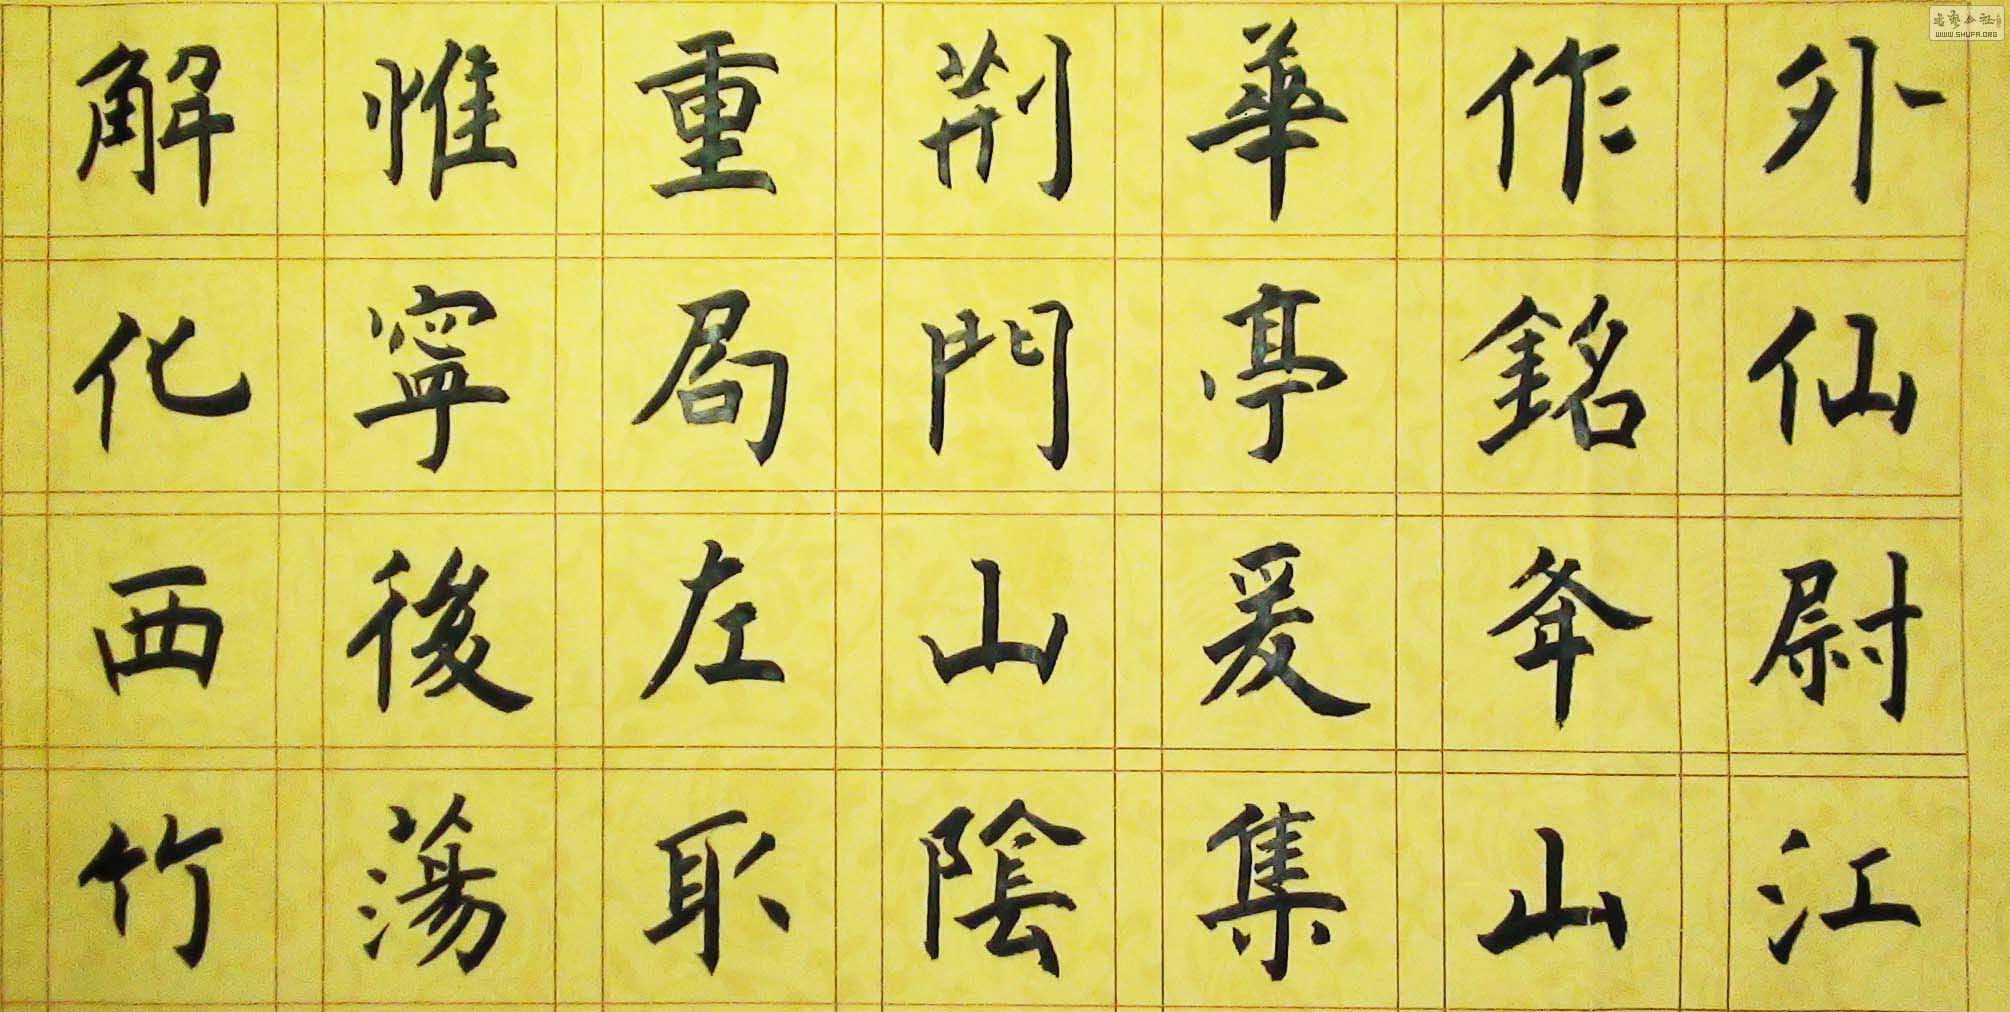 外仙尉江
作銘夅山
華亭爰集
荊門山陰
重局左取
惟寧後蕩
解化西竹
书艺公社
WWW.SHUFA.ORG